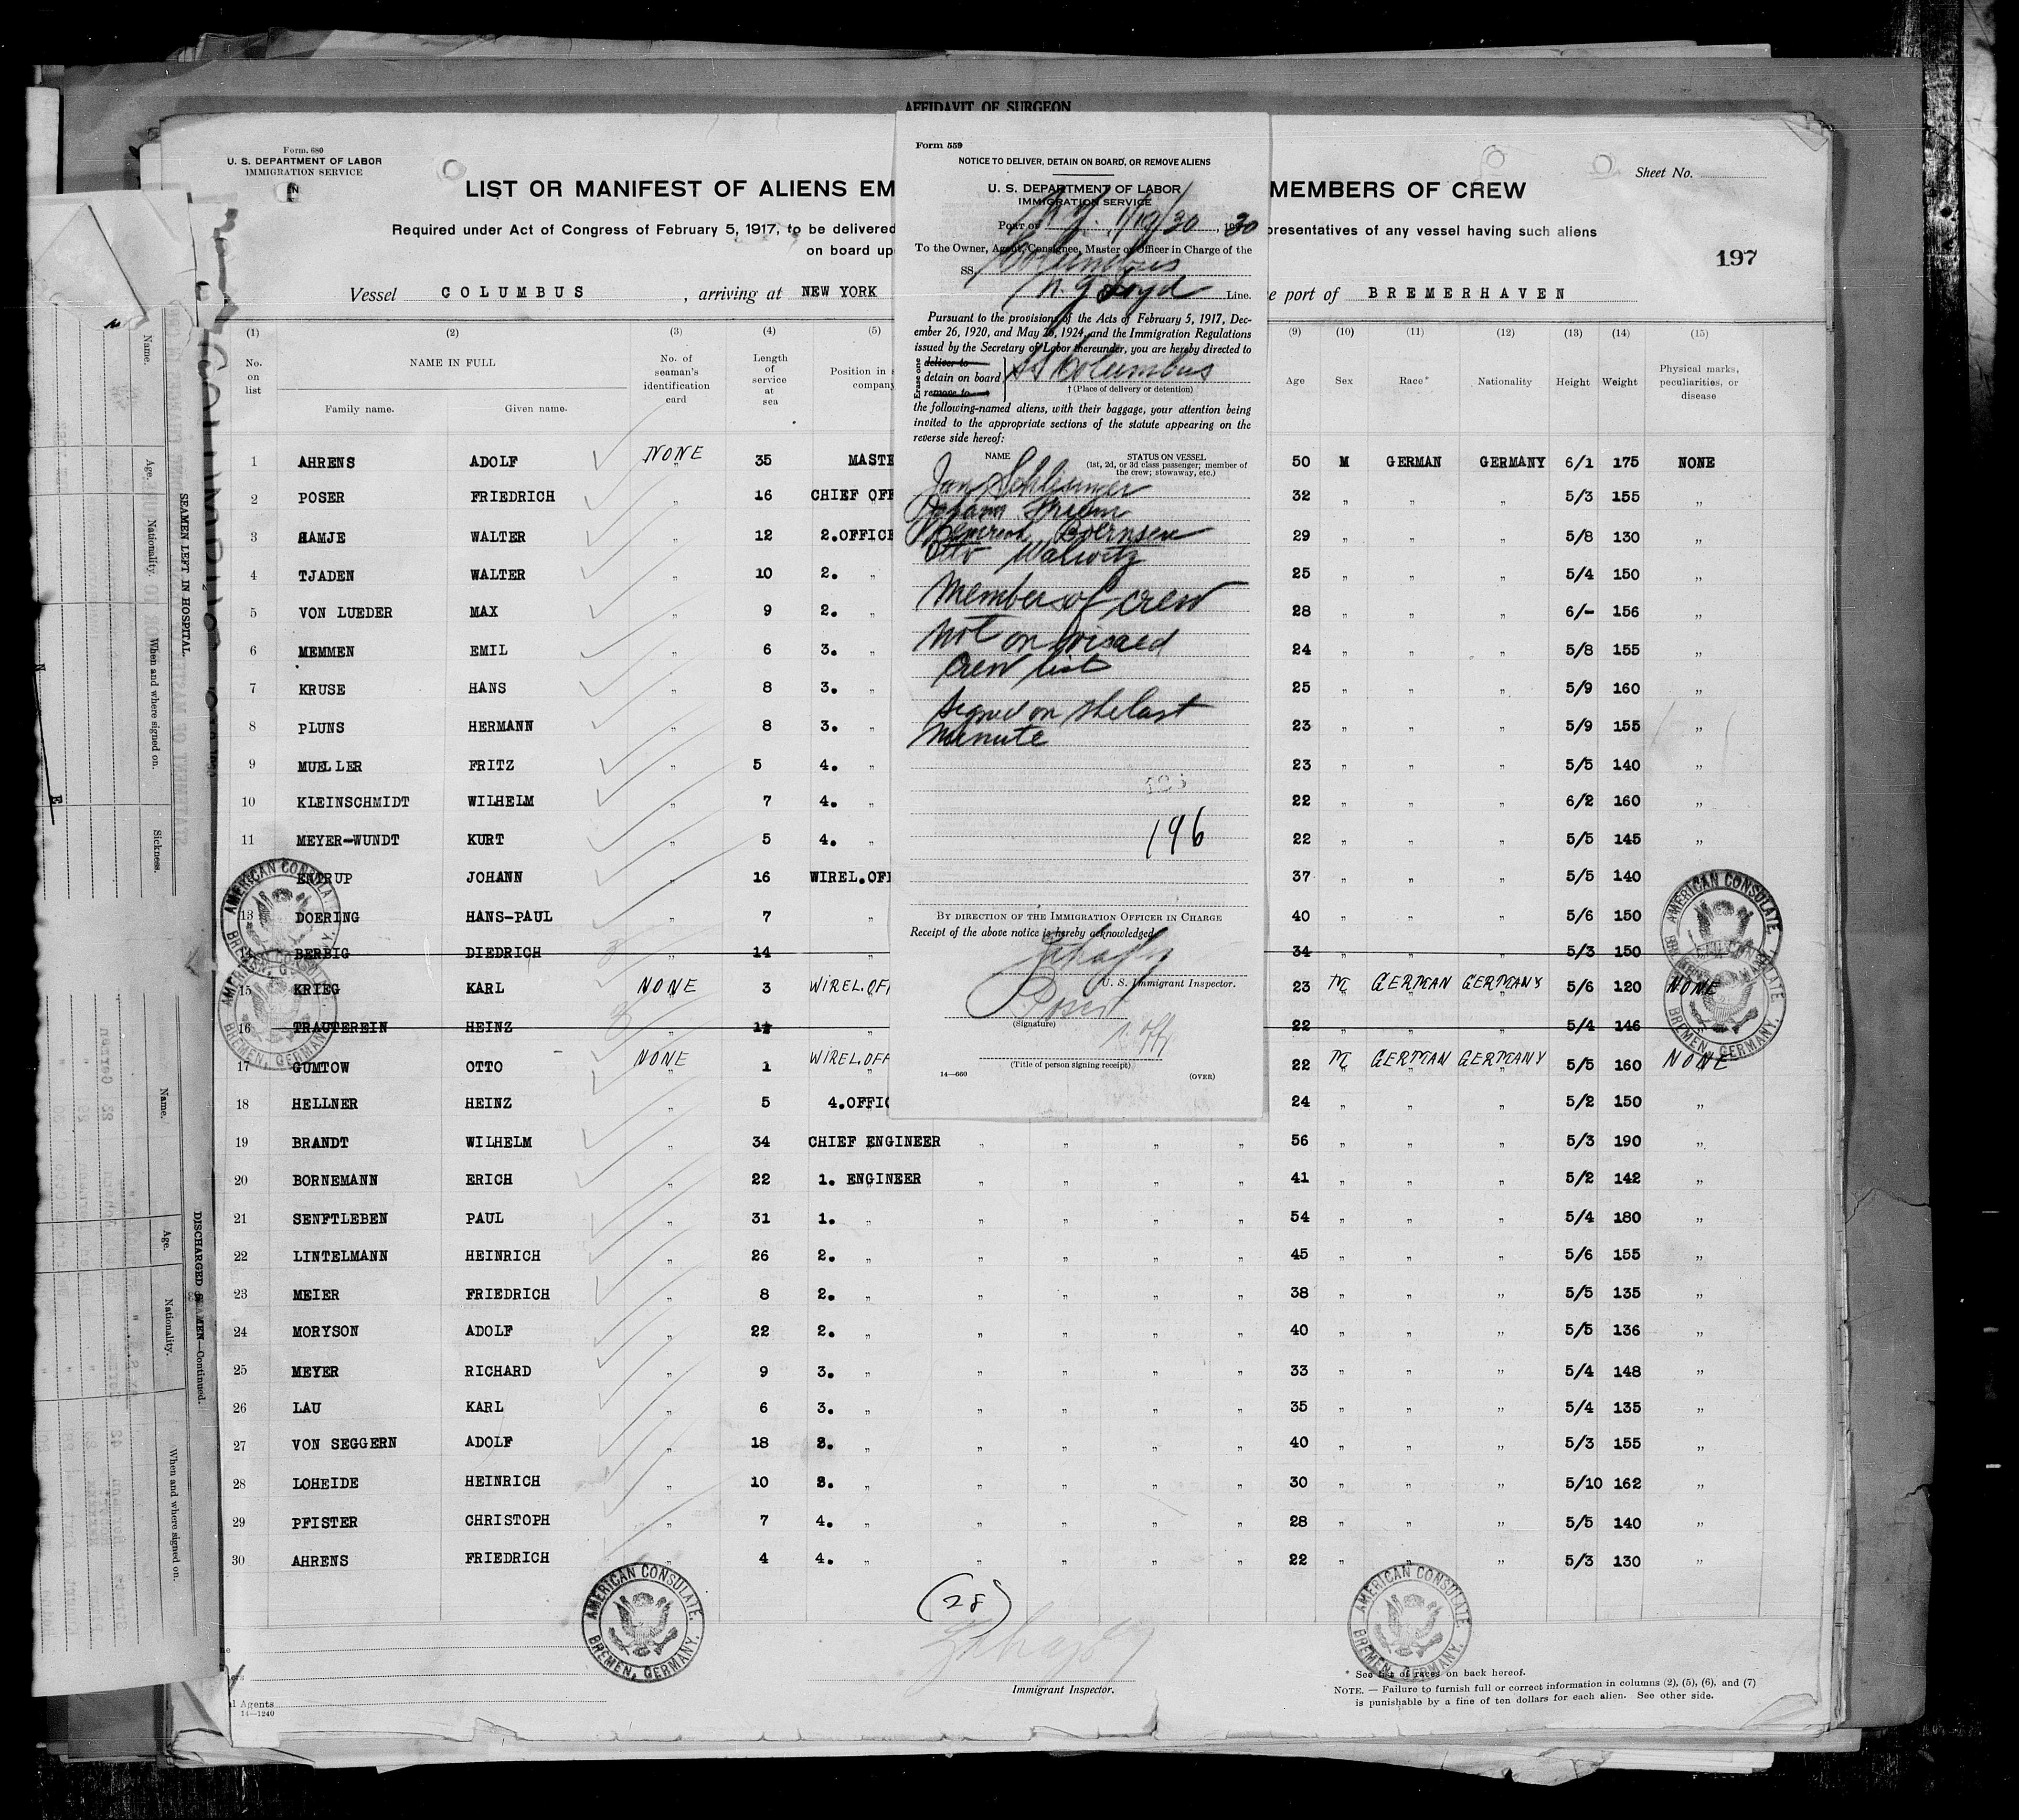 AFFIDAVIT OF SURGEON
Form 680
U. S. DEPARTMENT OF LABOR
IMMIGRATION SERVICE
Sheet No.
LIST OR MANIFEST OF ALIENS EM
MEMBERS OF CREW
Required under Act of Congress of February 5, 1917, to be delivered
presentatives of any vessel having such aliens
on board up
197
Vessel COLUMBUS , arriving at NEW YORK
e port of BREMERHAVEN
(1) (2) (3) (4) (5) (9) (10) (11) (12) (13) (14) (15)
No. on list
NAME IN FULL
Family name. Given name.
No. of seaman's identification card
Length of service at sea
Position in s
company
Age Sex Race* Nationality Height Weight
Physical marks, peculiarities, or disease
1 AHRENS ADOLF NONE 35 MASTE 50 M GERMAN GERMANY 6/1 175 NONE
2 POSER FRIEDRICH " 16 CHIEF OFF 32 " " " 5/3 155 "
3 HAMJE WALTER " 12 2.OFFICE 29 " " " 5/8 130 "
4 TJADEN WALTER " 10 2. " 25 " " " 5/4 150 "
5 VON LUEDER MAX " 9 2. " 28 " " " 6/- 156 "
6 MEMMEN EMIL " 6 3. " 24 " " " 5/8 155 "
7 KRUSE HANS " 8 3. " 25 " " " 5/9 160 "
8 PLUNS HERMANN " 8 3. " 23 " " " 5/9 155 "
9 MUELLER FRITZ " 5 4. " 23 " " " 5/5 140 "
10 KLEINSCHMIDT WILHELM " 7 4. " 22 " " " 6/2 160 "
11 MEYER-WUNDT KURT " 5 4. " 22 " " " 5/5 145 "
ENTRUP JOHANN " 16 WIREL.OFF 37 " " " 5/5 140 "
13 DOERING HANS-PAUL " 7 " 40 " " " 5/6 150 "
14 BERBIG DIEDRICH 14 " 34 5/3 150
15 KRIEG KARL NONE 3 WIREL.OFF 23 M GERMAN GERMANY 5/6 120 NONE
16 TRAUTEREIN HEINZ " 22 5/4 146
17 GUMTOW OTTO NONE 1 WIREL.OFF 22 M GERMAN GERMANY 5/5 160 NONE
18 HELLNER HEINZ " 5 4.OFFIC 24 " " " 5/2 150 "
19 BRANDT WILHELM " 34 CHIEF ENGINEER " " " " 56 " " " 5/3 190 "
20 BORNEMANN ERICH " 22 1. ENGINEER " " " " 41 " " " 5/2 142 "
21 SENFTLEBEN PAUL " 31 1. " " " " " 54 " " " 5/4 180 "
22 LINTELMANN HEINRICH " 26 2. " " " " " 45 " " " 5/6 155 "
23 MEIER FRIEDRICH " 8 2. " " " " " 38 " " " 5/5 135 "
24 MORYSON ADOLF " 22 2. " " " " " 40 " " " 5/5 136 "
25 MEYER RICHARD " 9 3. " " " " " 33 " " " 5/4 148 "
26 LAU KARL " 6 3. " " " " " 35 " " " 5/4 135 "
27 VON SEGGERN ADOLF " 18 3. " " " " " 40 " " " 5/3 155 "
28 LOHEIDE HEINRICH " 10 3. " " " " " 30 " " " 5/10 162 "
29 PFISTER CHRISTOPH " 7 4. " " " " " 28 " " " 5/5 140 "
30 AHRENS FRIEDRICH " 4 4. " " " " " 22 " " " 5/3 130 "
(28)
Immigrant Inspector.
* See list of races on back hereof.
NOTE. — Failure to furnish full or correct information in columns (2), (5), (6), and (7)
is punishable by a fine of ten dollars for each alien. See other side.
l Agents
14—1240
AMERICAN CONSULATE. BREMEN, GERMANY.
AMERICAN CONSULATE. BREMEN, GERMANY.
AMERICAN CONSULATE. BREMEN, GERMANY.
AMERICAN CONSULATE. BREMEN, GERMANY.
Form 559
NOTICE TO DELIVER, DETAIN ON BOARD, OR REMOVE ALIENS
U. S. DEPARTMENT OF LABOR
IMMIGRATION SERVICE
Port of N.Y. 1/19/30, 1930
To the Owner, Agent, Consignee, Master or Officer in Charge of the
SS. Columbus
N. G Loyd Line.
Pursuant to the provisions of the Acts of February 5, 1917, Dec-
ember 26, 1920, and May 26, 1924, and the Immigration Regulations
issued by the Secretary of Labor thereunder, you are hereby directed to
Erase one
deliver to
detain on board
remove to
SS Columbus
† (Place of delivery or detention)
the following-named aliens, with their baggage, your attention being
invited to the appropriate sections of the statute appearing on the
reverse side hereof:
NAME STATUS ON VESSEL
(1st, 2d, or 3d class passenger; member of
the crew; stowaway, etc.)
Boernsen
Otto
Members of crew
not on visaed
crew list
Signed on the last
minute
196
BY DIRECTION OF THE IMMIGRATION OFFICER IN CHARGE
Receipt of the above notice is hereby acknowledged
U. S. Immigrant Inspector.
Poser
(Signature)
1. Off
(Title of person signing receipt)
14—660
(OVER)
SEAMEN LEFT IN HOSPITAL.
Name. Age. Nationality. When and where signed on. Sickness.
DISCHARGED SEAMEN—Continued.
Name. Age. Nationality. When and where signed on.